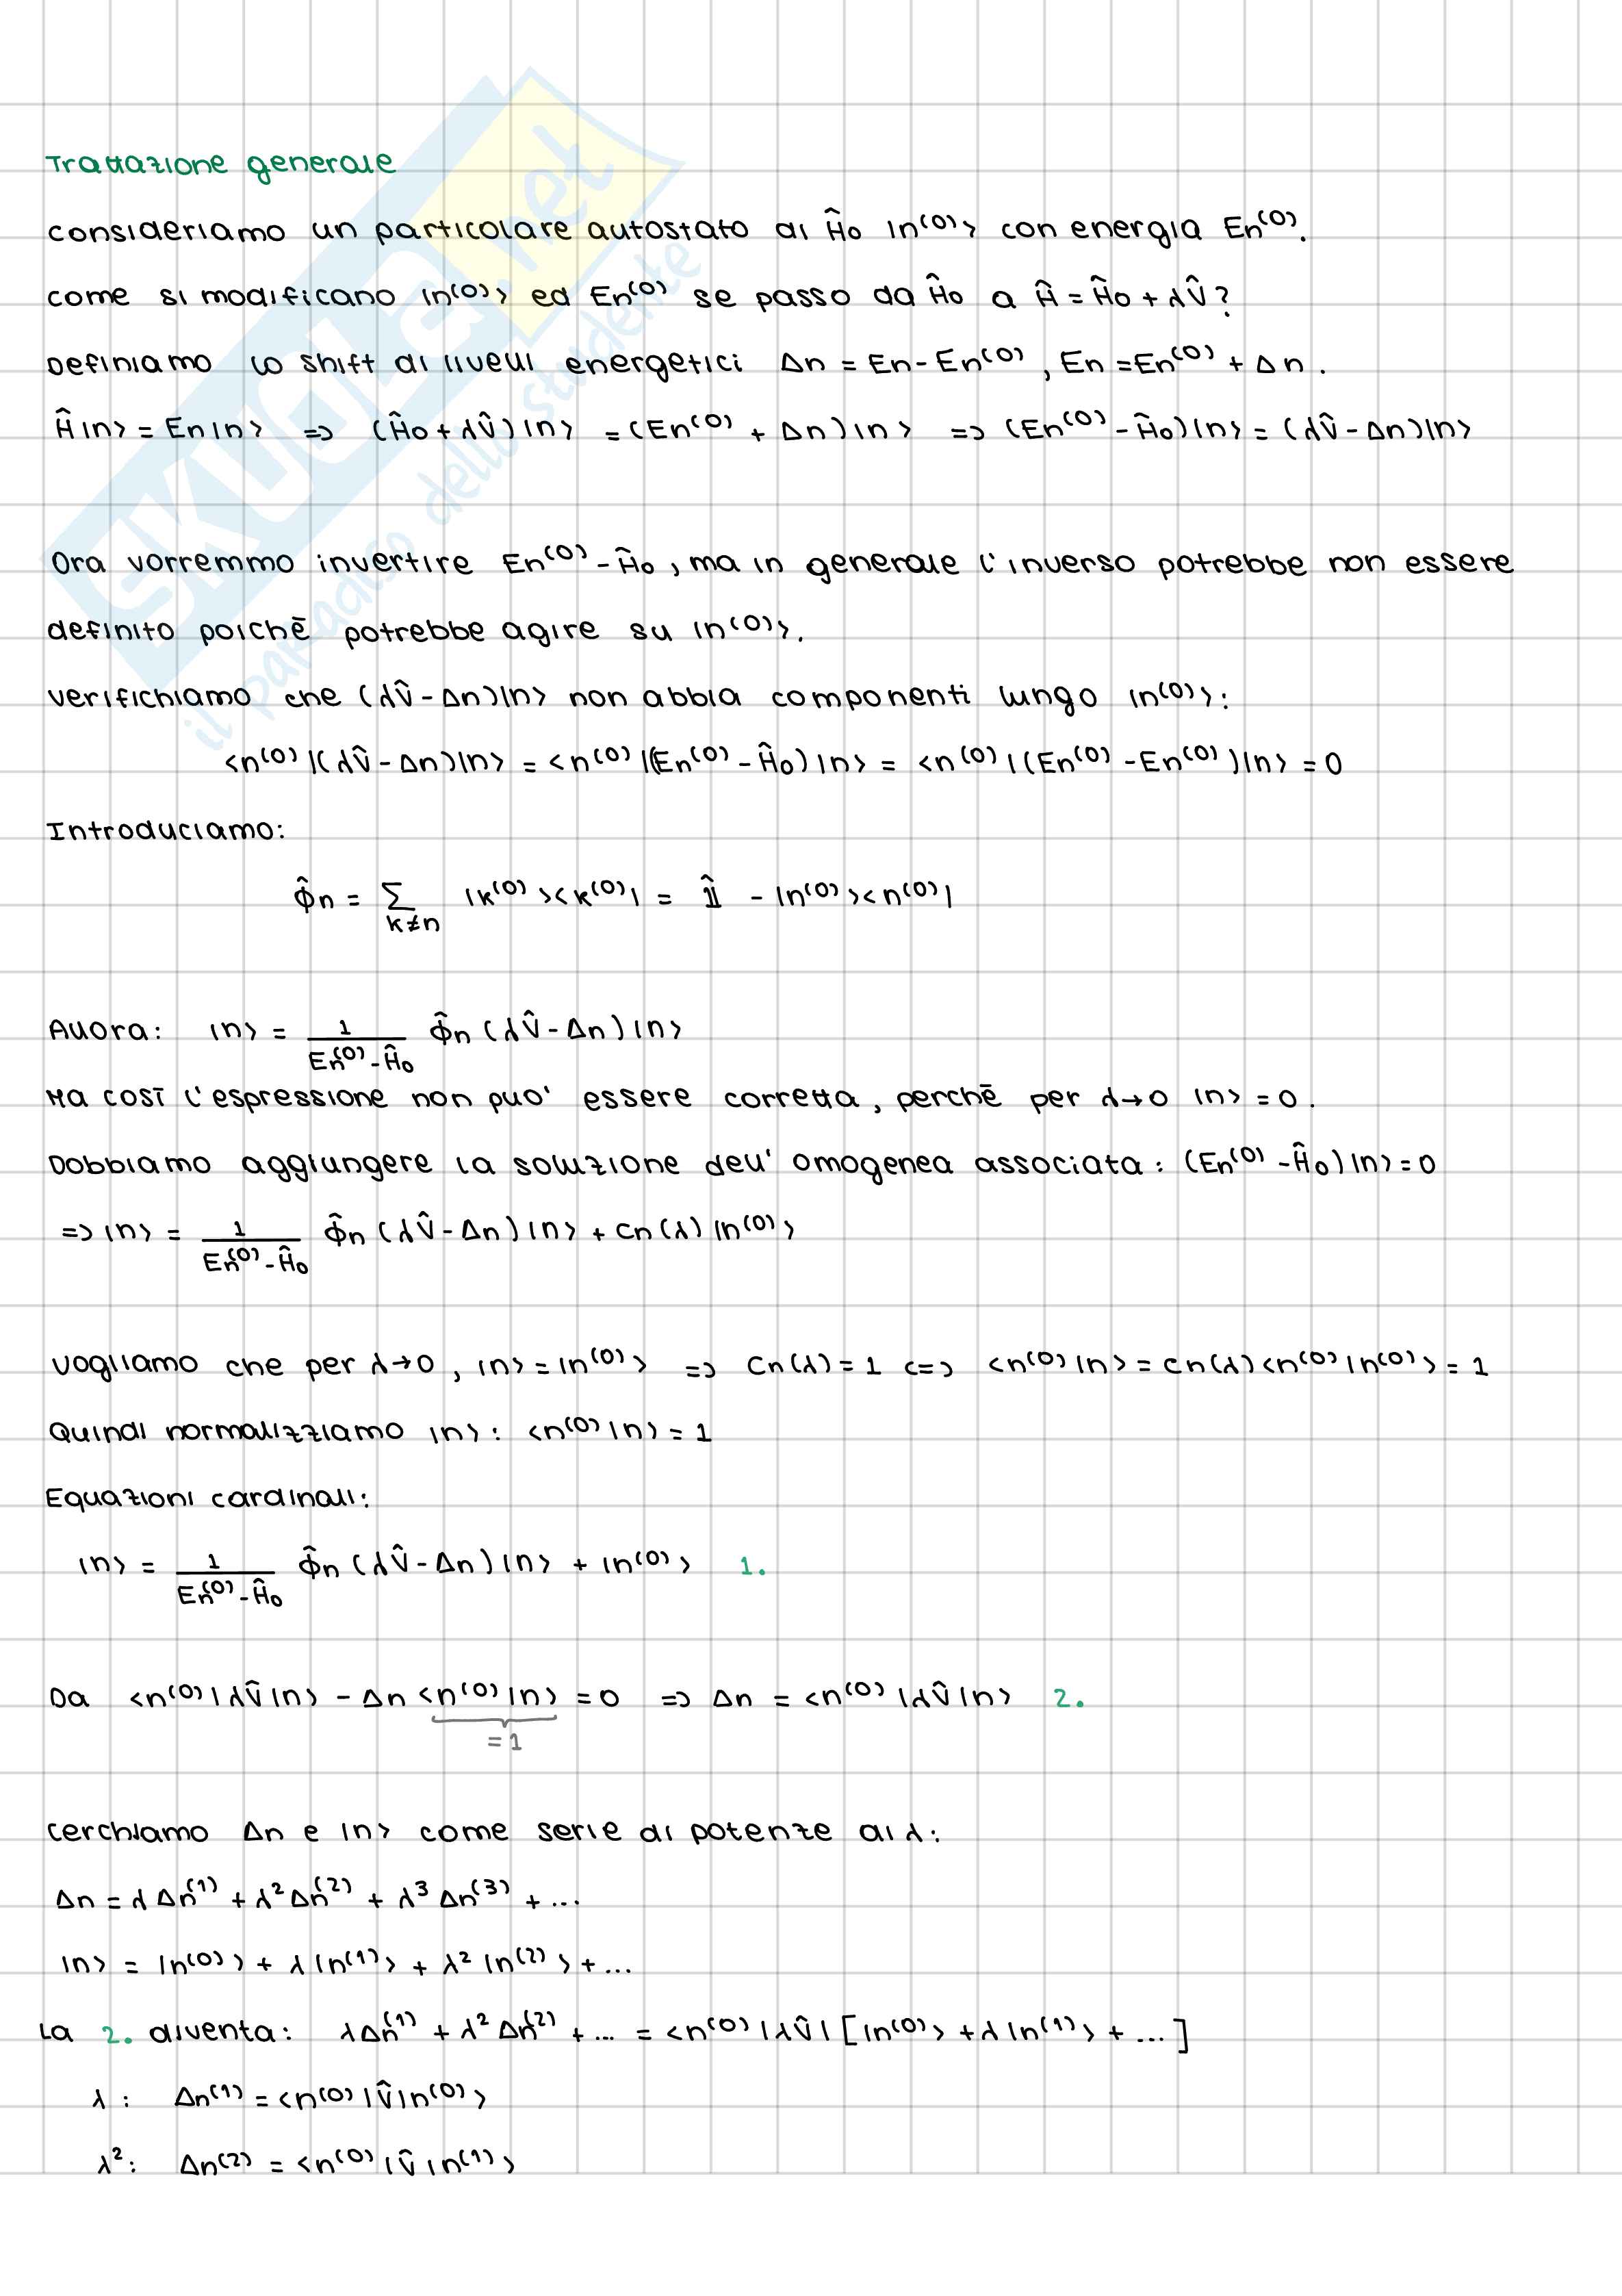 Trattazione generale
consideriamo un particolare autostato di Ĥ₀ |n⁽⁰⁾> con energia En⁽⁰⁾.
come si modificano |n⁽⁰⁾> ed En⁽⁰⁾ se passo da Ĥ₀ a Ĥ = Ĥ₀ + λV̂?
Definiamo lo shift di livelli energetici Δn = En - En⁽⁰⁾, En = En⁽⁰⁾ + Δn.
Ĥ|n> = En|n> => (Ĥ₀ + λV̂)|n> = (En⁽⁰⁾ + Δn)|n> => (En⁽⁰⁾ - Ĥ₀)|n> = (λV̂ - Δn)|n>
Ora vorremmo invertire En⁽⁰⁾ - Ĥ₀, ma in generale l'inverso potrebbe non essere
definito poichē potrebbe agire su |n⁽⁰⁾>.
verifichiamo che (λV̂ - Δn)|n> non abbia componenti lungo |n⁽⁰⁾>:
<n⁽⁰⁾|(λV̂ - Δn)|n> = <n⁽⁰⁾|(En⁽⁰⁾ - Ĥ₀)|n> = <n⁽⁰⁾|(En⁽⁰⁾ - En⁽⁰⁾)|n> = 0
Introduciamo:
ϕ̂n = Σ_{k≠n} |k⁽⁰⁾><k⁽⁰⁾| = 𝟙̂ - |n⁽⁰⁾><n⁽⁰⁾|
Allora: |n> = 1/(En⁽⁰⁾ - Ĥ₀) ϕ̂n (λV̂ - Δn)|n>
Ma cosī l'espressione non puo' essere corretta, perchē per λ→0 |n> = 0.
Dobbiamo aggiungere la soluzione dell' omogenea associata: (En⁽⁰⁾ - Ĥ₀)|n> = 0
=> |n> = 1/(En⁽⁰⁾ - Ĥ₀) ϕ̂n (λV̂ - Δn)|n> + cn(λ)|n⁽⁰⁾>
vogliamo che per λ→0, |n> = |n⁽⁰⁾> => cn(λ) = 1 <=> <n⁽⁰⁾|n> = cn(λ)<n⁽⁰⁾|n⁽⁰⁾> = 1
Quindi normalizziamo |n>: <n⁽⁰⁾|n> = 1
Equazioni cardinali:
|n> = 1/(En⁽⁰⁾ - Ĥ₀) ϕ̂n (λV̂ - Δn)|n> + |n⁽⁰⁾> 1.
Da <n⁽⁰⁾|λV̂|n> - Δn <n⁽⁰⁾|n> = 0 => Δn = <n⁽⁰⁾|λV̂|n> 2.
= 1
cerchiamo Δn e |n> come serie di potenze di λ:
Δn = λΔn⁽¹⁾ + λ²Δn⁽²⁾ + λ³Δn⁽³⁾ + ...
|n> = |n⁽⁰⁾> + λ|n⁽¹⁾> + λ²|n⁽²⁾> + ...
La 2. diventa: λΔn⁽¹⁾ + λ²Δn⁽²⁾ + ... = <n⁽⁰⁾|λV̂|[|n⁽⁰⁾> + λ|n⁽¹⁾> + ...]
λ: Δn⁽¹⁾ = <n⁽⁰⁾|V̂|n⁽⁰⁾>
λ²: Δn⁽²⁾ = <n⁽⁰⁾|V̂|n⁽¹⁾>
SKUOLA.net
il paradiso dello studente